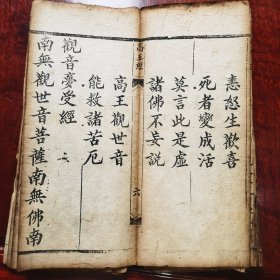 恚怒生歡喜
死者變成活
莫言此是虛
諸佛不妄說
高王經
六
高王觀世音
能救諸苦厄
觀音夢受經
南無觀世音菩薩南無佛南